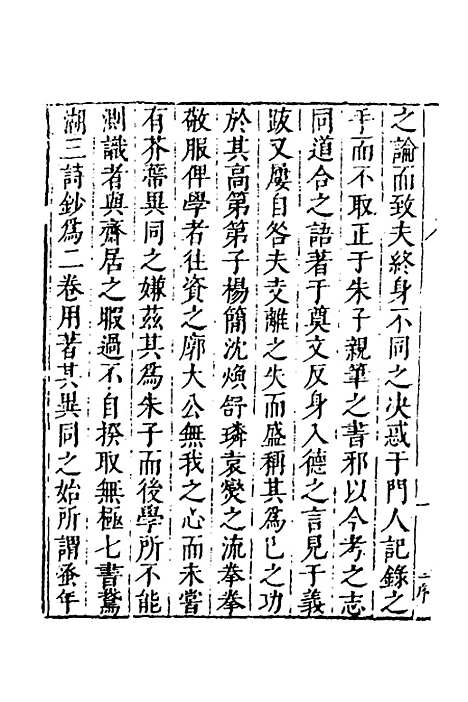 之論而致夫終身不同之决惑于門人記錄之
手而不取正于朱子親筆之書邪以今考之志
同道合之語著于奠文反身入德之言見于義
跋又屢自咎夫支離之失而盛稱其爲已之功
於其高第弟子楊簡沈煥舒璘袁燮之流拳拳
敬服俾學者往資之廓大公無我之心而未嘗
有芥蔕異同之嫌玆其爲朱子而後學所不能
測識者與齋居之暇過不自揆取無極七書鵞
湖三詩鈔爲二卷用著其異同之始所謂蚤年
序
二